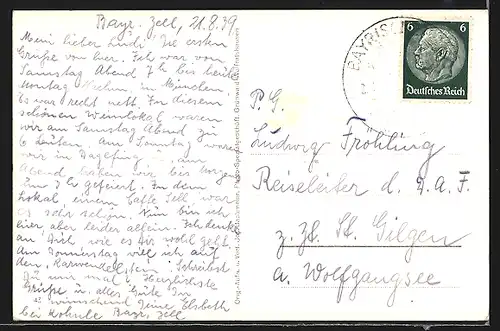 Bayr. Zell, 21.8.39
Mein lieber Ludi! Die ersten
Grüße von hier. Ich war vom
Samstag Abend 7h bis heute
Montag Nachm. in München.
Es war recht nett. In diesem
schönen Weinlokal waren
wir am Samstag Abend zu
6 Leuten. Am Sonntag waren
wir in am
Abend haben wir bis morgens
7h gefeiert. In dem
Lokal, einem Caffe
es sehr schön. Nun bin ich
hier aber leider allein. Ich denke
an Dich, wie es Dir wohl geht.
Am Donnerstag will ich auf
den Karwendelstein. Schreibst
Du mir mal? Herzlichste
Grüße u. alles Gute Dir
wünschend Deine Elsbeth
bei Bayr. Zell
BAYRISCH
6 6
Deutsches Reich
P. G.
Ludwig Fröhling
Reiseleiter d. D.A.F.
z. Zt. St. Gilgen
a. Wolfgangsee